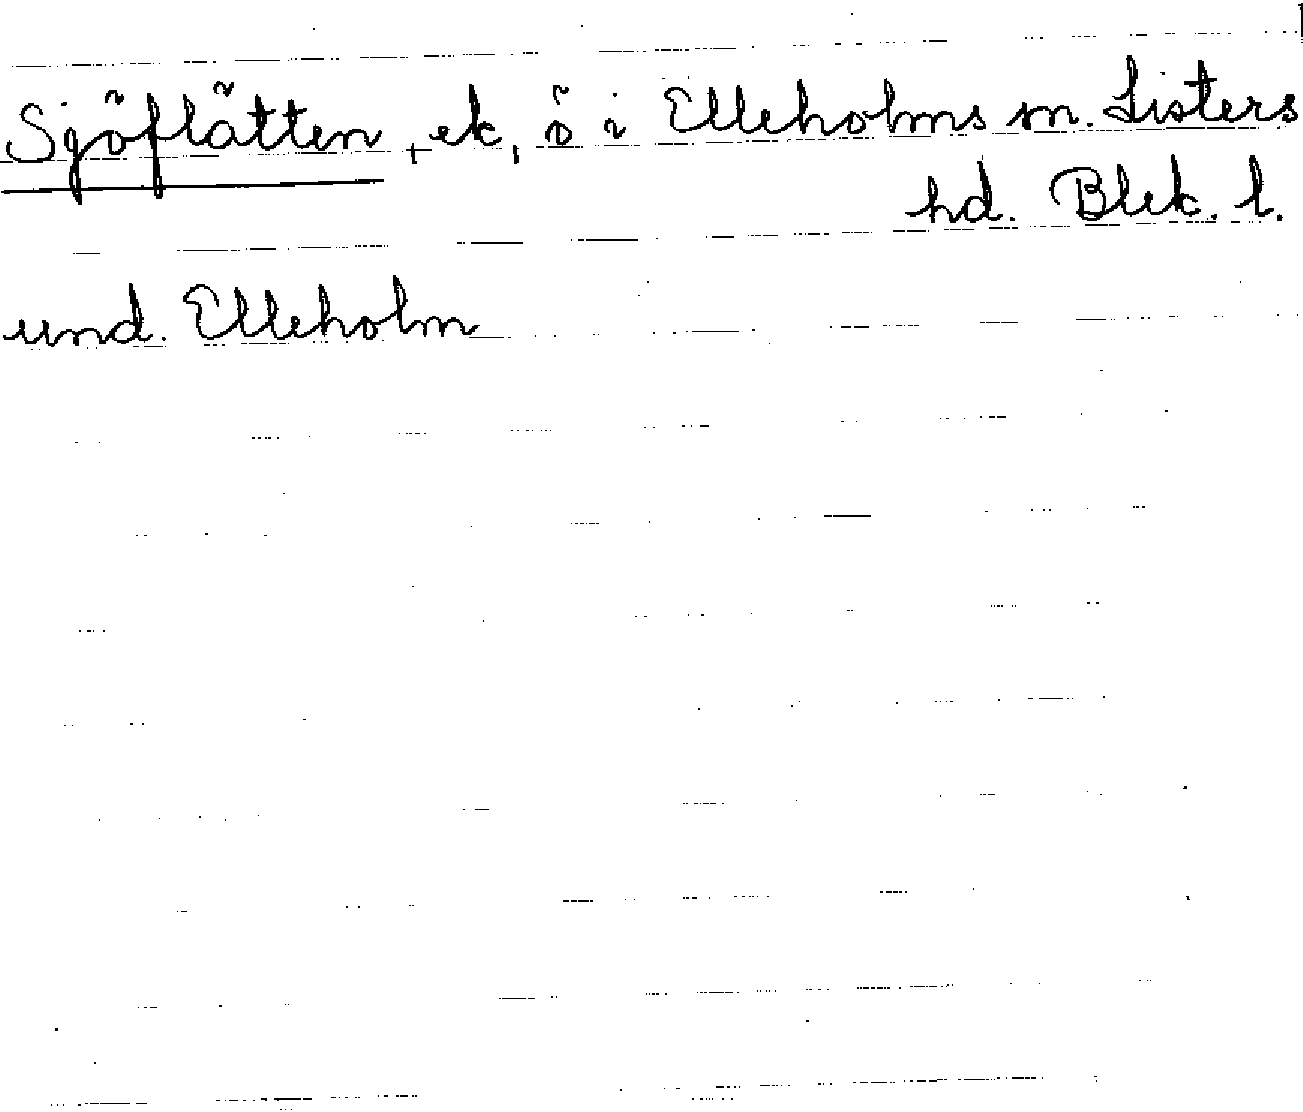 Sjöflätten, ek, ö i Elleholms sn. Listers
hd. Blek. l.
und. Elleholm